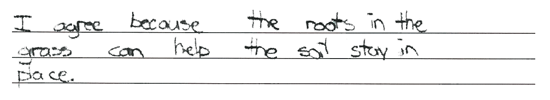 I agree because the roots in the
grass can help the soil stay in
place.